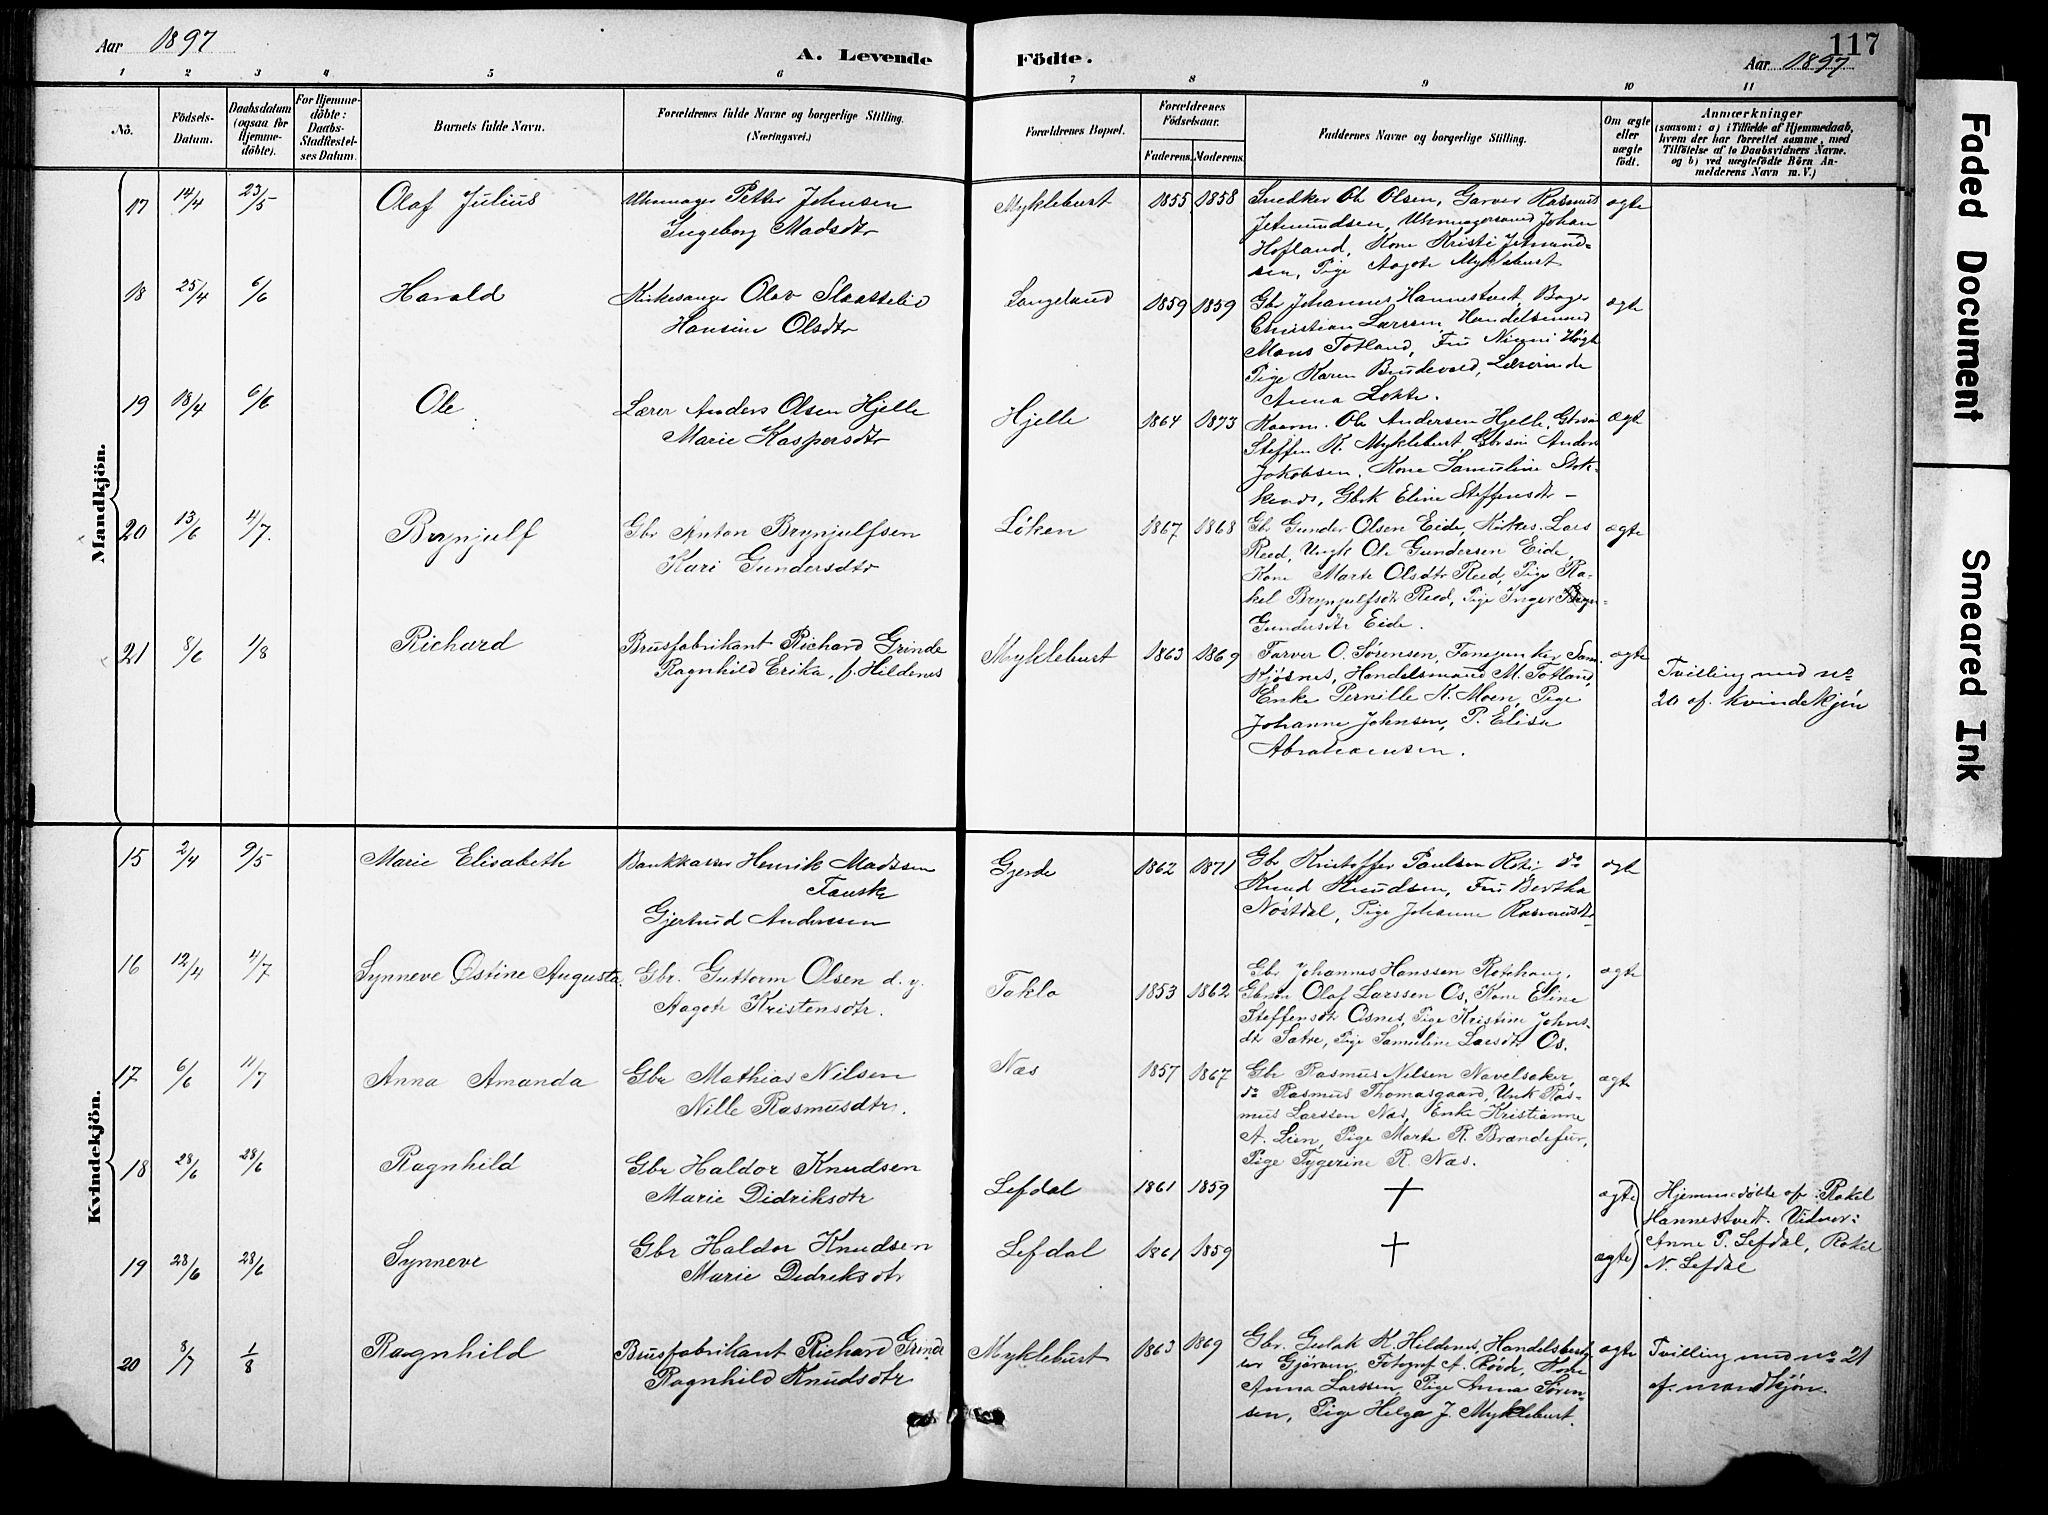 Aar 1897
A. Levende
Födte.
117
Aar 1897
1 2 3 4 5 6 7 8 9 10 11
No.
Födsels-
Datum.
Daabsdatum
(ogsaa for
Hjemme-
döbte).
For Hjemme-
döbte:
Daabs-
Stadfæstel-
ses Datum.
Barnets fulde Navn.
Forældrenes fulde Navne og borgerlige Stilling.
(Næringsvei.)
Forældrenes Bopæl.
Forældrenes
Födselsaar.
Faderens.
Moderens.
Faddernes Navne og borgerlige Stilling.
Om ægte
eller
uægte
födt.
Anmærkninger
(saasom: a) i Tilfælde af Hjemmedaab,
hvem der har forrettet samme, med
Tilföielse af to Daabsvidners Navne.
og b) ved uægtefödte Börn An-
melderens Navn m. V.)
Mandkjön.
17 14/4 23/5 Olaf Julius
Uhrmager Petter Johnsen
Ingeborg Madsdtr
Myklebust 1855 1858
Snedker Ole Olsen, Garver Rasmus
Jetmundsen, Johan
Hofland, Kone Kristi Jetmund-
sen, Pige Aagote Myklebust
ægte
18 25/4 6/6 Harald
Kirkesanger Olav Slaattelid
Hansine Olsdtr
Langeland 1859 1859
Gbr Johannes Hannestveit, Bager
Christian Larssen, Handelsmand
Mons Totland, Fru Høgh
Pige Karen Lærerinde
Anna Løkke.
ægte
19 18/4 6/6 Ole
Lærer Anders Olsen Hjelle
Marie Kaspersdtr
Hjelle 1864 1873
Kaarm. Ole Andersen Hjelle, Gbrsøn
Steffen K. Myklebust Gbrsøn Anders
Jakobsen. Kone Samuline Stok-
Gbrk Eline Steffensdtr
ægt
20 13/6 11/7. Brynjulf
Gbr Anton Brynjulfsen
Kari Gundersdtr
Løken 1867 1868
Gbr Gunder Olsen Eide, Kirkes. Lars
Reed, Ungk Ole Gundersen Eide,
Kone Marte Olsdtr Reed, Pige Ra-
kel Brynjulfsdtr Reed, Pige Inger
Gundersdtr Eide.
ægte
21 8/6 1/8 Richard
Brusfabrikant Richard Grinde
Ragnhild Erika, f. Hildenes
Myklebust 1863 1869
Farver O. Sørensen, Fanejunker Sam.
Njøsnes, Handelsmand M. Totland,
Enke Pernille K. Moen, Pige
Johanne Johnsen, P. Elisa
Abrahamsen.
ægte
Tvilling med no
20 af kvindekjøn
Kvindekjön.
15 2/4 9/5 Marie Elisabeth
Bankkasser Henrik Madssen
Tauske
Gjertrud Anderssen
Gjerde 1862 1871
Gbr Kristoffer Paulsen do
Knud Knudsen, Fru Bertha
Nøstdal, Pige Johanne Rasmusdtr
ægt
16 12/4 11/7 Synneve Østine Augusta.
Gbr. Guttorm Olsen d. y.
Aagote Kristensdtr.
Taklo 1853 1862
Gbr Johannes Hanssen Rotehaug,
Gbrsøn Olaf Larssen Os, Kone Eline
Steffensdtr Osnes, Pige Kristine Johns-
dtr Sætre, Pige Samuline Larsdtr Os.
ægte
17 6/6 11/7 Anna Amanda
Gbr Mathias Nilsen
Nille Rasmusdtr.
Næs 1857 1867
Gbr Rasmus Nilsen Navelsaker,
do Rasmus Thomasgaard, Unk Ras-
mus Larssen Næs, Enke Kristianne
A. Lien, Pige Marte R. Brandefur,
Pige Tygerine R. Næs.
ægte
18 28/6 28/6 Ragnhild
Gbr Haldor Knudsen
Marie Didriksdtr
Lefdal 1861 1859
ægte
Hjemmedøbte af Rakel
Hannestveit. Vidner:
Anne P. Lefdal, Rakel
N. Lefdal
19 28/6 28/6 Synneve
Gbr Haldor Knudsen
Marie Didriksdtr
Lefdal 1861 1859
ægte
20 8/7 1/8 Ragnhild
Brusfabrikant Richard Grinde
Ragnhild Knudsdtr
Myklebust 1863 1869
Gbr. Gulak K. Hildenes, Handelsbesty-
rer Gjørven, Fotograf A. Røide, Kone
Anna Larssen, Pige Anna Søren-
sen, Pige Helga J. Myklebust.
ægte
Tvilling med no 21
af mandkjøn.
Faded Document
Smeared Ink